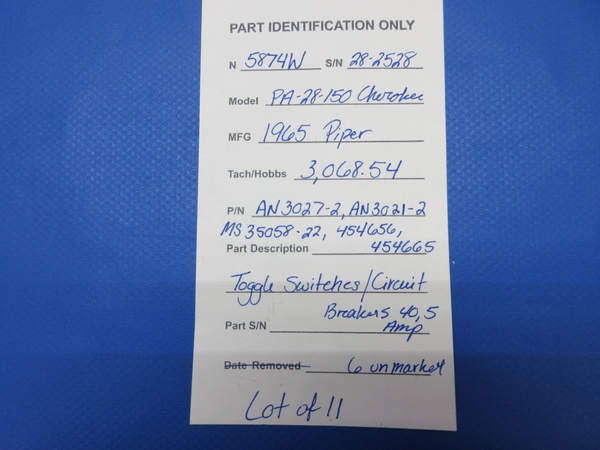 PART IDENTIFICATION ONLY
N 5874W S/N 28-2528
Model PA-28-150 Cherokee
MFG 1965 Piper
Tach/Hobbs 3,068.54
P/N AN3027-2, AN3021-2
MS 35058-22, 454656,
Part Description 454665
Toggle Switches/Circuit
Breakers 40, 5
Part S/N Amp
Date Removed 6 unmarked
Lot of 11